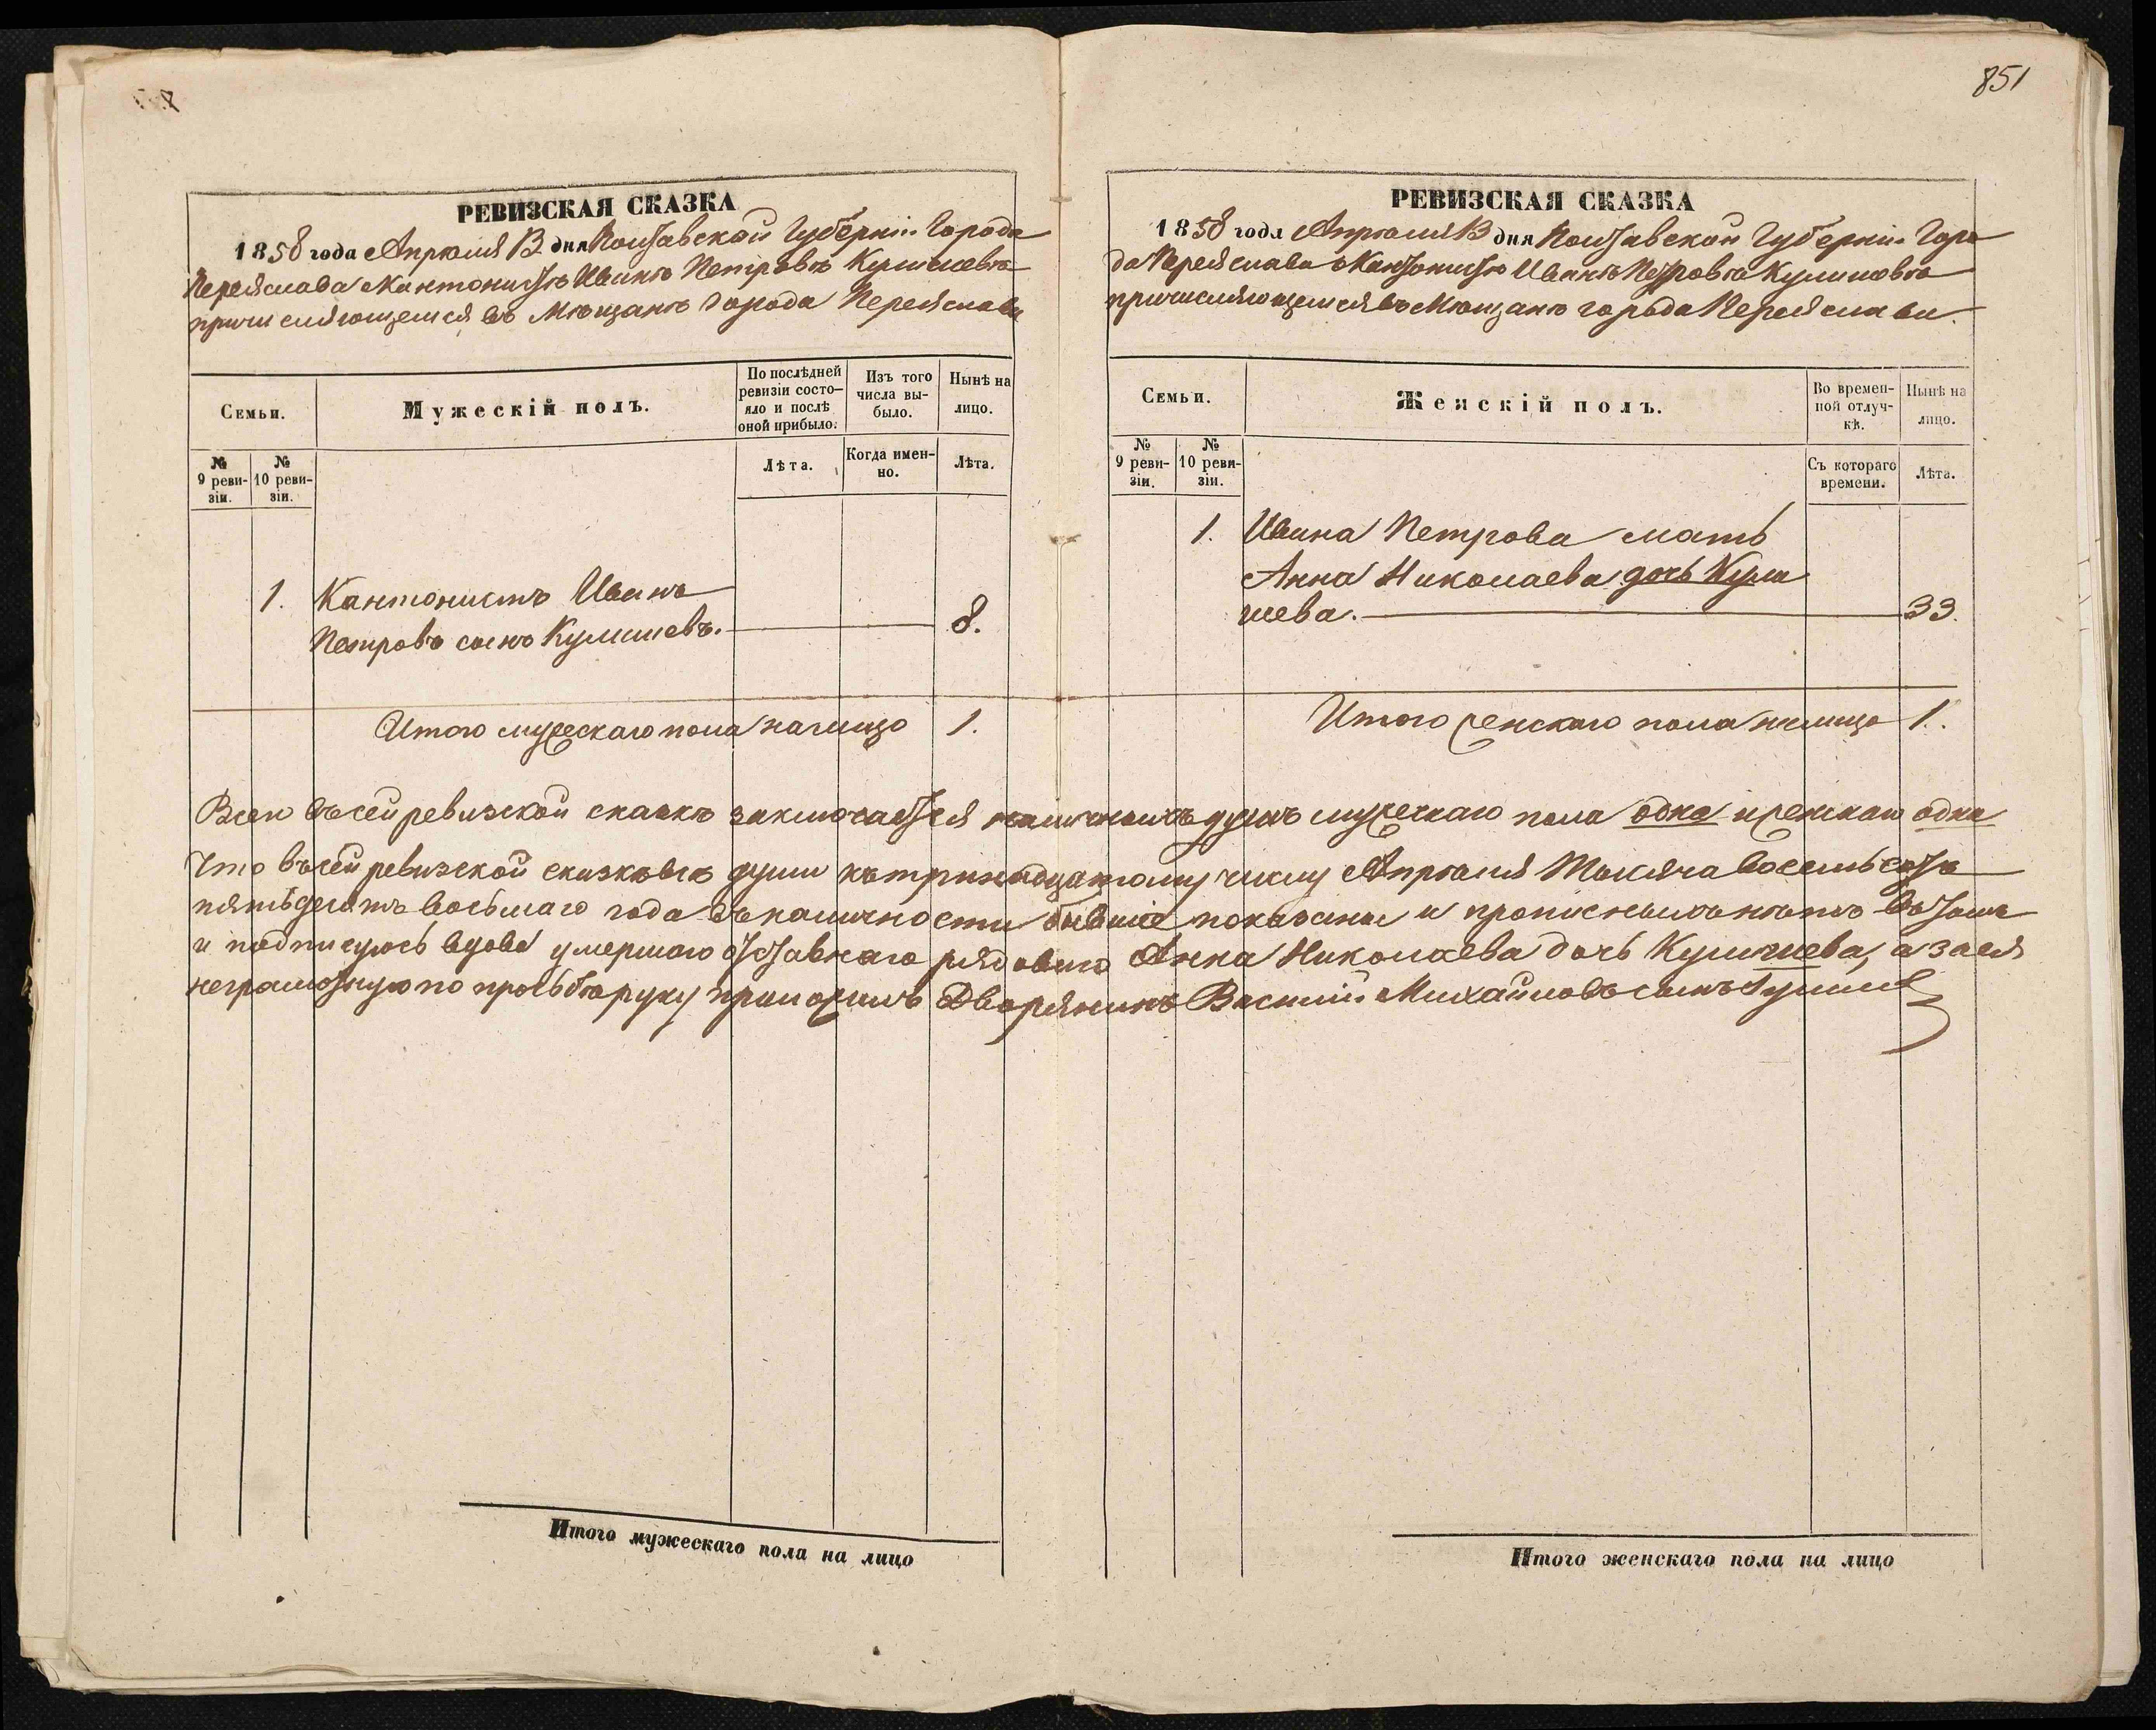 851
РЕВИЗСКАЯ СКАЗКА
1858 года Апрѣля 13 дня Полтавской Губерніи Города
Переяслава Кантонистѣ Иванѣ Петровѣ Кулишевѣ
причисляющемся въ Мѣщане города Переяслава
Семьи.
Мужескій полъ.
По послѣдней ревизіи состо-
яло и послѣ оной прибыло.
Изъ того числа вы-
было.
Нынѣ на лицо.
№ 9 реви-
зіи.
№ 10 реви-
зіи.
Лѣта.
Когда имен-
но.
Лѣта.
1. Кантонистъ Иванъ
Петровъ сынъ Кулишевъ. 8.
Итого мужескаго пола на лицо 1.
РЕВИЗСКАЯ СКАЗКА
1858 года Апрѣля 13 дня Полтавской Губерніи Горо
да Переяслава о Кантонистѣ Иванѣ Петровѣ Кулишовѣ
причисляющемся въ Мѣщане города Переяслава.
Семьи.
Женскій полъ.
Во времен-
ной отлуч-
кѣ.
Нынѣ на лицо.
№ 9 реви-
зіи.
№ 10 реви-
зіи.
Съ котораго времени.
Лѣта.
1. Ивана Петрова мать
Анна Николаева дочь Кули
шева. 33.
Итого женскаго пола налицо 1.
Всего въ сей ревизской сказкѣ заключается наличныхъ душъ мужескаго пола одна и женскаго одна
Что въ сей ревизской сказкѣ всѣ души къ тринадцатому числу Апрѣля Тысяча восемьсотъ
пятьдесятъ восьмаго года въ наличности бывшіе показаны и прописныхъ нѣтъ въ томъ
и подписуюсь вдова умершаго отставнаго рядоваго Анна Николаева дочь Кулишева, а за ея
неграмотную по прозьбѣ руку приложилъ Дворянинъ Василій Михайловъ сынъ
Итого мужескаго пола на лицо
Итого женскаго пола на лицо